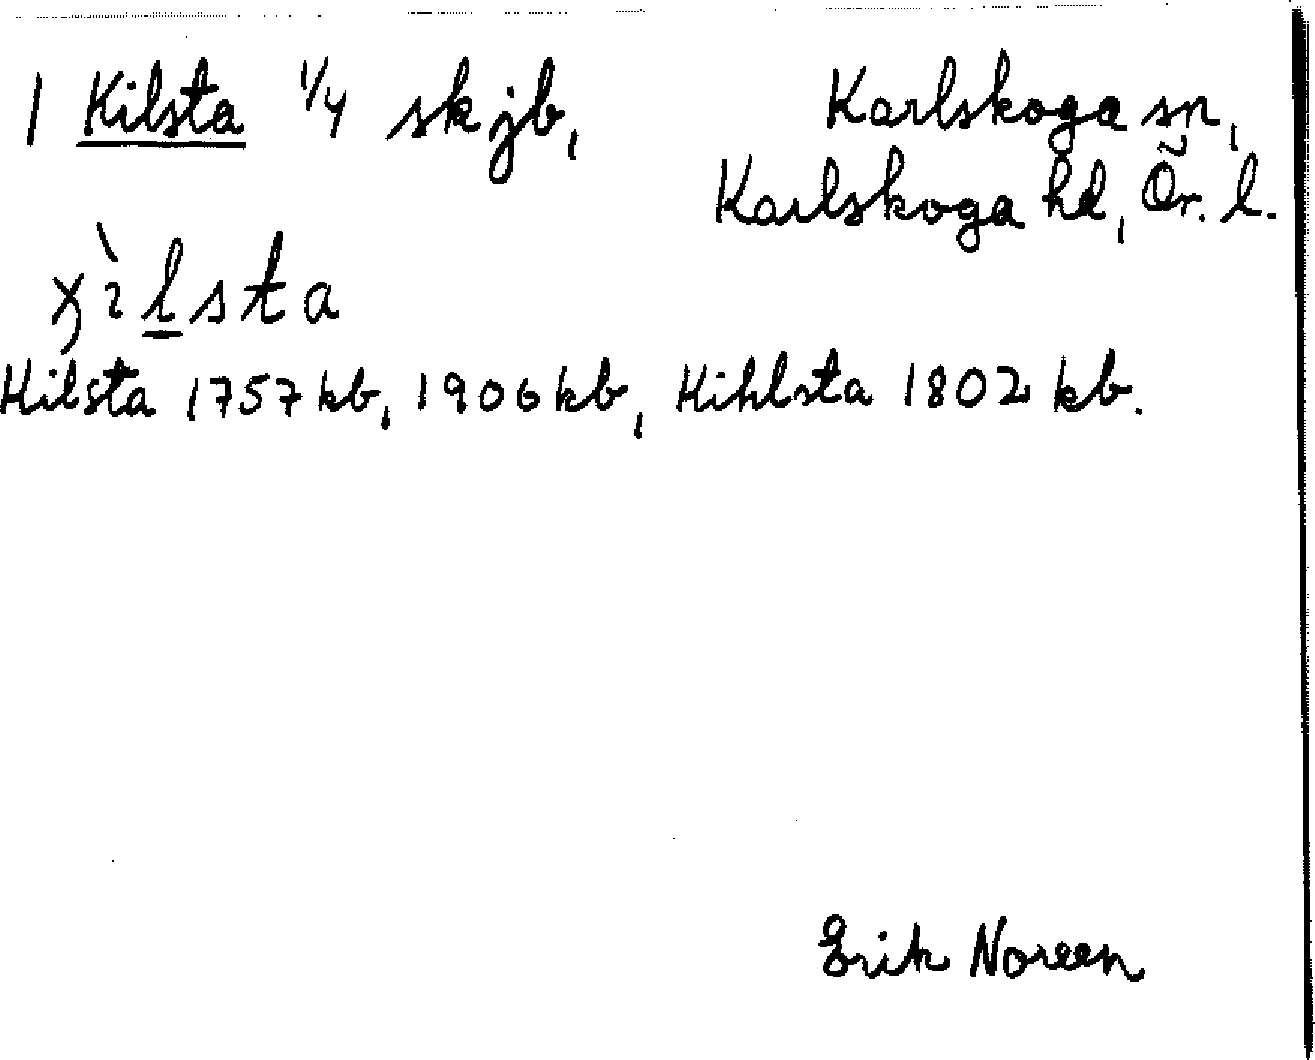 1 Kilsta 1/4 skjb, Karlskoga sn,
Karlskoga hd, Ör. l.
Kilsta 1757 kb, 1906 kb, Kihlsta 1802 kb.
Erik Noreen